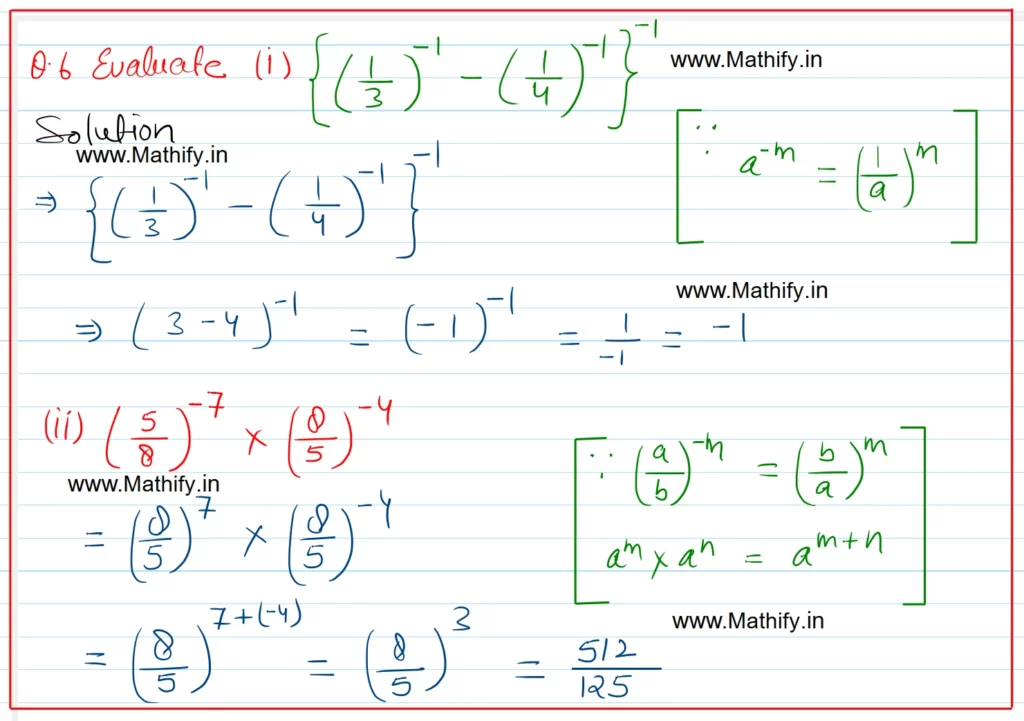 Q.6 Evaluate (i) {(1/3)^-1 - (1/4)^-1}^-1
www.Mathify.in
Solution
www.Mathify.in
⇒ {(1/3)^-1 - (1/4)^-1}^-1
[∵ a^-m = (1/a)^m]
www.Mathify.in
⇒ (3-4)^-1 = (-1)^-1 = 1/-1 = -1
(ii) (5/8)^-7 × (8/5)^-4
www.Mathify.in
= (8/5)^7 × (8/5)^-4
[∵ (a/b)^-m = (b/a)^m
a^m × a^n = a^m+n]
www.Mathify.in
= (8/5)^7+(-4) = (8/5)^3 = 512/125